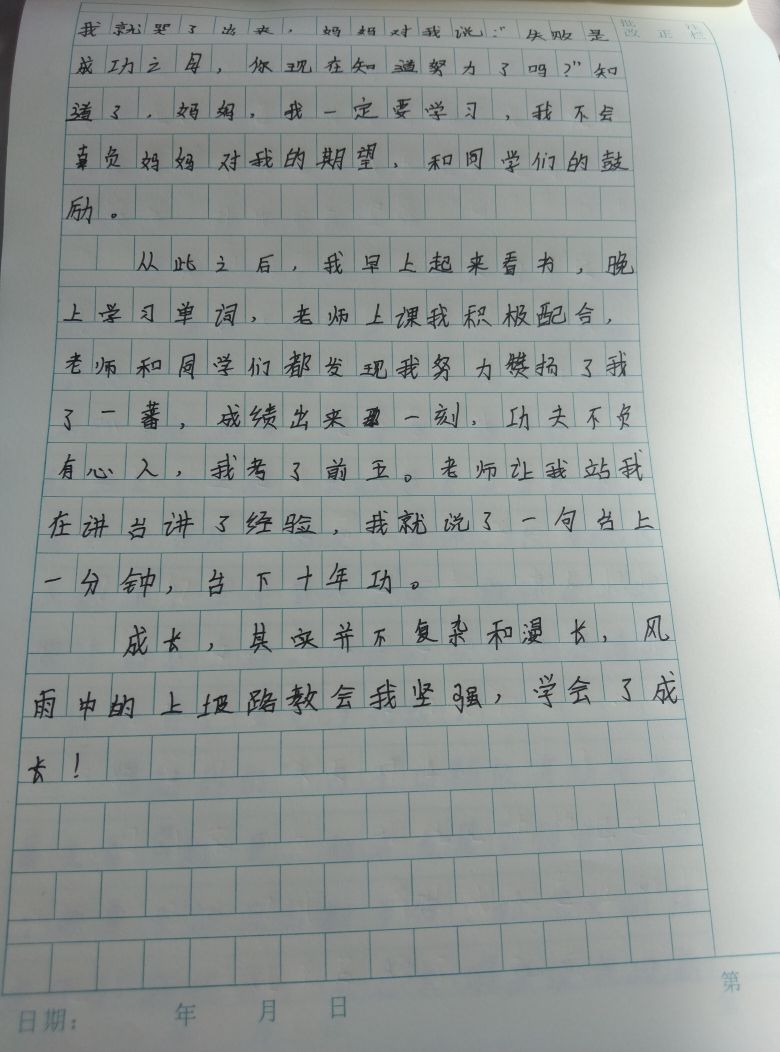 我就哭了出来，妈妈对我说："失败是
批 评
改 正 栏
成功之母，你现在知道努力了吗？"知
道了，妈妈，我一定要学习，我不会
辜负妈妈对我的期望，和同学们的鼓
励。
从此之后，我早上起来看书，晚
上学习单词，老师上课我积极配合，
老师和同学们都发现我努力赞扬了我
了一蕃，成绩出来那一刻，功夫不负
有心人，我考了前五。老师让我站我
在讲台讲了经验，我就说了一句台上
一分钟，台下十年功。
成长，其实并不复杂和漫长，风
雨中的上坡路教会我坚强，学会了成
长！
日期： 年 月 日
第